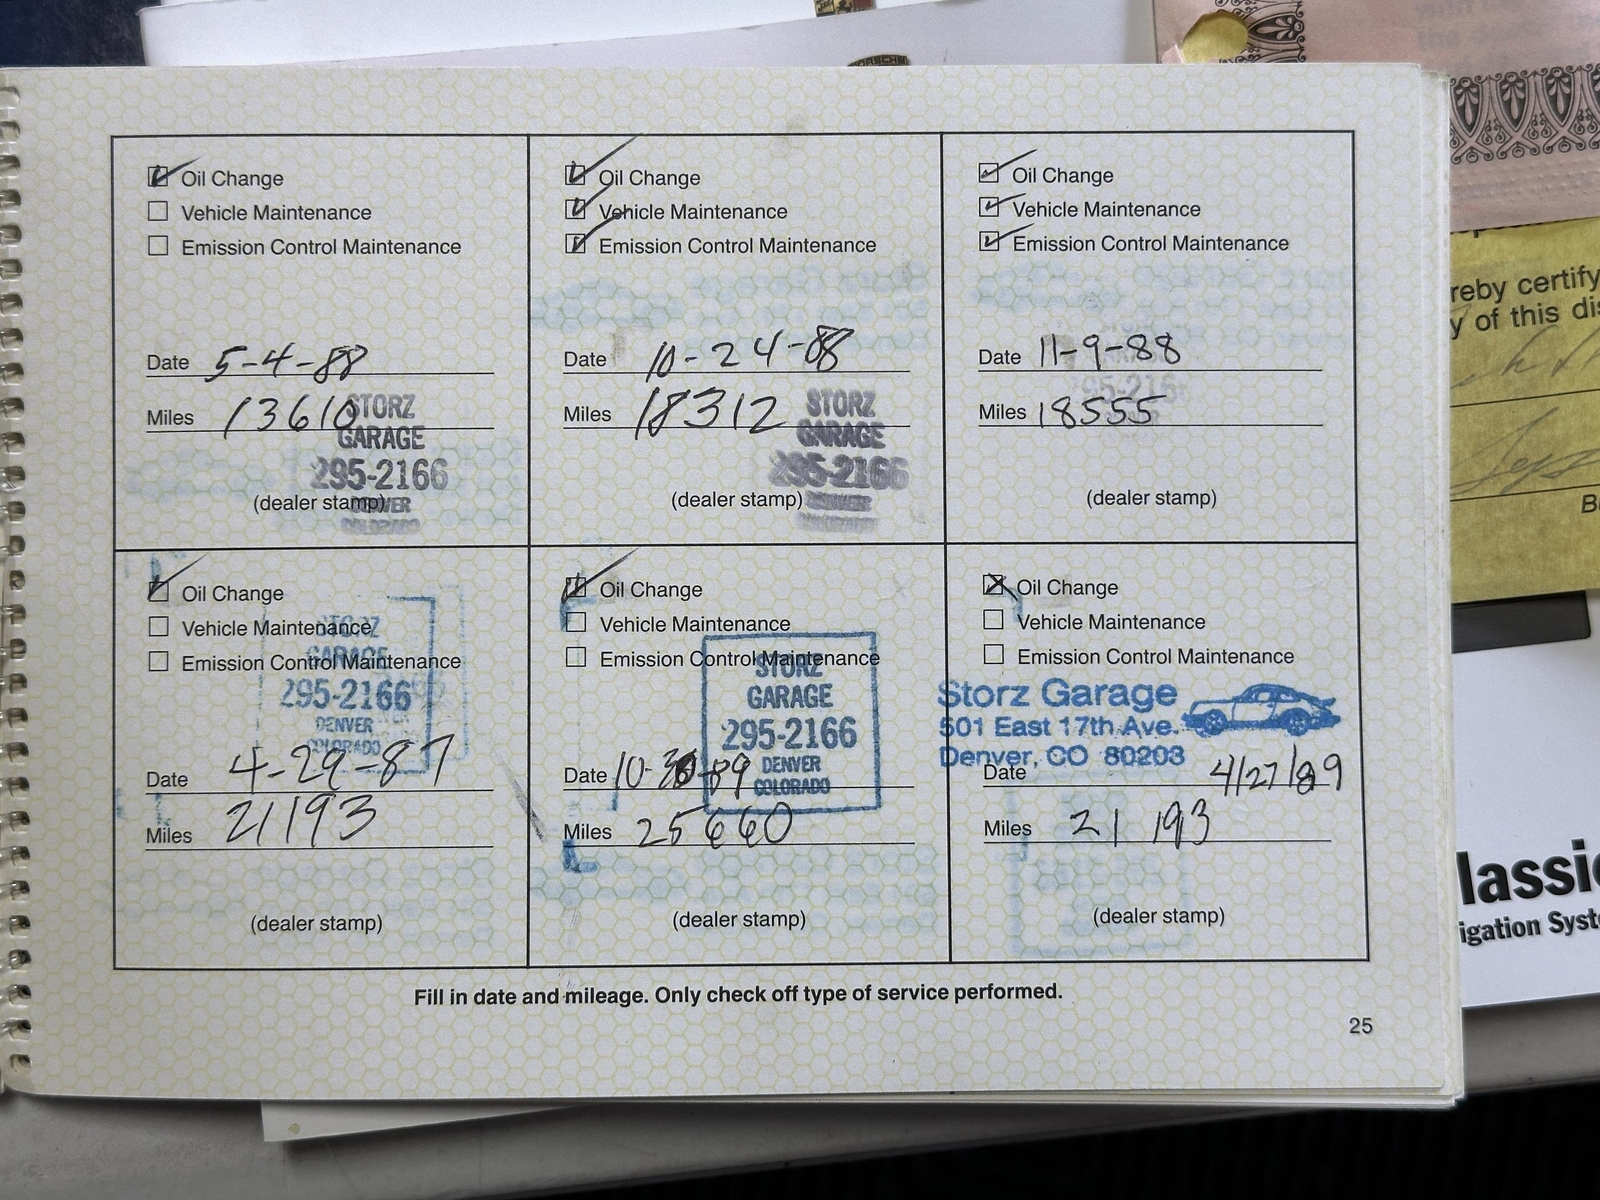 PORSCHE
Oil Change
Vehicle Maintenance
Emission Control Maintenance
Date 5-4-88
Miles 13610
STORZ
GARAGE
295-2166
(dealer stamp)
DENVER
COLORADO
Oil Change
Vehicle Maintenance
Emission Control Maintenance
Date 10-24-88
Miles 18312
STORZ
GARAGE
295-2166
(dealer stamp)
DENVER
COLORADO
Oil Change
Vehicle Maintenance
Emission Control Maintenance
Date 11-9-88
295-216
Miles 18555
(dealer stamp)
Oil Change
Vehicle Maintenance
STORZ
Emission Control Maintenance
GARAGE
295-2166
DENVER
COLORADO
Date 4-29-87
Miles 21193
(dealer stamp)
Oil Change
Vehicle Maintenance
Emission Control Maintenance
STORZ
GARAGE
295-2166
DENVER
COLORADO
Date 10-30-89
Miles 25660
(dealer stamp)
Oil Change
Vehicle Maintenance
Emission Control Maintenance
Storz Garage
501 East 17th Ave.
Denver, CO 80203
Date 4/27/89
Miles 21 193
(dealer stamp)
Fill in date and mileage. Only check off type of service performed.
25
reby certify
y of this dis
lassic
igation Syst